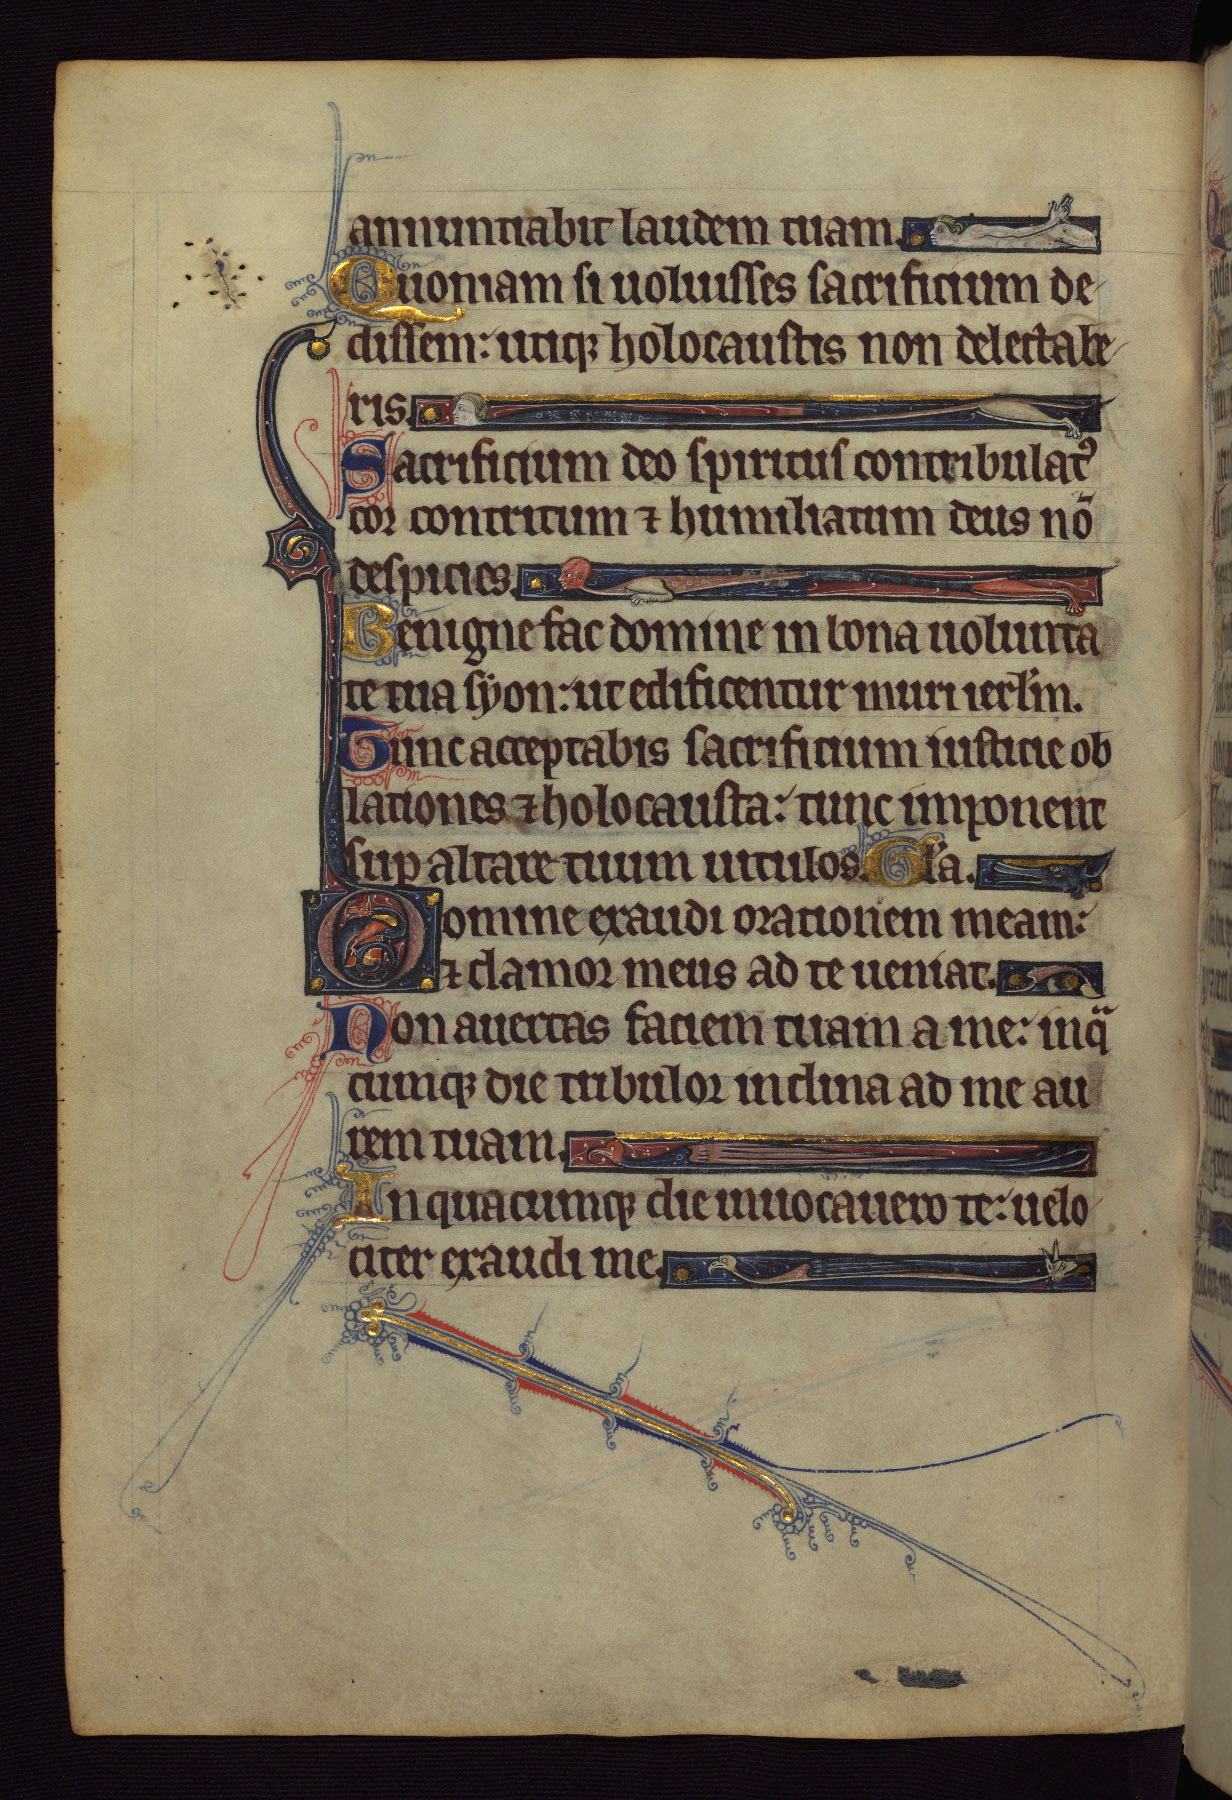 annuntiabit laudem tuam.
Quoniam si uoluisses sacrificium de-
dissem: utiqꝫ holocaustis non delectabe-
ris.
Sacrificium deo spiritus contribulatꝰ
cor contritum ⁊ humiliatum deus nō
despicies.
Benigne fac domine in bona uolunta
te tua syon: ut edificentur muri ierl̃m.
Tunc acceptabis sacrificium iusticie ob
lationes ⁊ holocausta: tunc imponent
suꝑ altare tuum uitulos. Gl̃a.
Domine exaudi orationem meam:
⁊ clamor meus ad te ueniat.
Non auertas faciem tuam a me: in qͣ
cumqꝫ die tribulor inclina ad me au
rem tuam.
In quacumqꝫ die inuocauero te: uelo-
citer exaudi me.